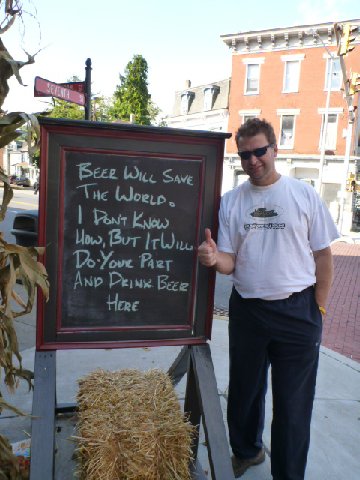 SEVENTH
BEER WILL SAVE
THE WORLD.
I DON'T KNOW
HOW, BUT IT WILL
DO YOUR PART
AND DRINK BEER
HERE